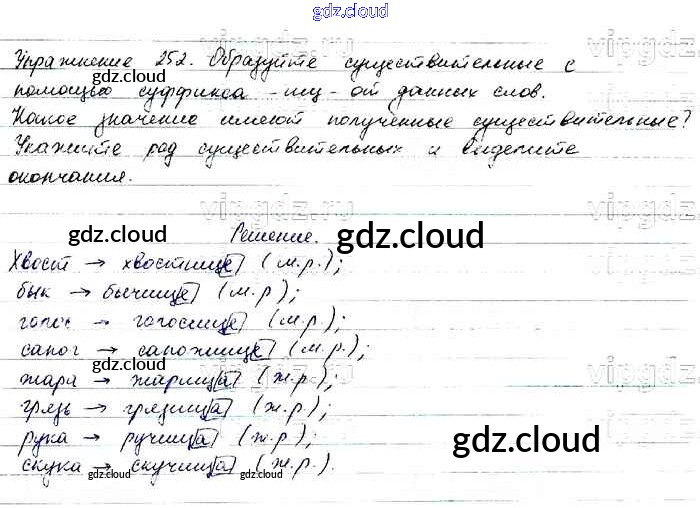 gdz.cloud
Упражнение 252. Образуйте существительные с
помощью суффикса -ищ- от данных слов.
Какое значение имеют полученные существительные?
Укажите род существительных и выделите
окончания.
gdz.cloud
Решение.
gdz.cloud
Хвост → хвостище (м.р.);
бык → бычище (м.р);
голос → голосище (м.р.);
сапог → сапожище (м.р.);
жара → жарища (ж.р.);
грязь → грязища (ж.р.);
рука → ручища (ж.р.);
скука → скучища (ж.р.).
gdz.cloud
gdz.cloud
gdz.cloud
gdz.cloud
gdz.cloud
gdz.cloud
vipgdz
vipgdz
vipgdz
vipgdz
vipgdz
vipgdz